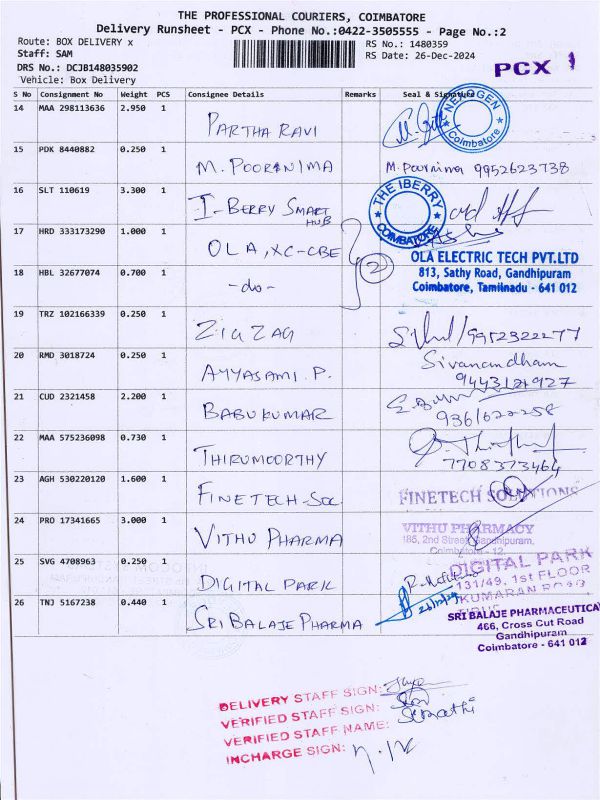 THE PROFESSIONAL COURIERS, COIMBATORE
Delivery Runsheet - PCX - Phone No.:0422-3505555 - Page No.:2
Route: BOX DELIVERY x
RS No.: 1480359
Staff: SAM
RS Date: 26-Dec-2024
DRS No.: DCJB148035902
Vehicle: Box Delivery
PCX 1
S No Consignment No Weight PCS Consignee Details Remarks Seal & Signature
14 MAA 298113636 2.950 1 PARTHA RAVI
NEXTGEN Coimbatore
15 PDK 8440882 0.250 1 M. POORNIMA M. Poornima 9952623738
16 SLT 110619 3.300 1 I-BERRY SMART HUB
THE IBERRY COIMBATORE
17 HRD 333173290 1.000 1 OLA, XC-CBE
2
OLA ELECTRIC TECH PVT.LTD
813, Sathy Road, Gandhipuram
Coimbatore, Tamilnadu - 641 012
18 HBL 32677074 0.700 1 -do-
19 TRZ 102166339 0.250 1 ZIGZAG 9952322277
20 RMD 3018724 0.250 1 AYYASAMI. P. Sivanandham
9443121927
21 CUD 2321458 2.200 1 BABUKUMAR
9361622258
22 MAA 575236098 0.730 1 THIRUMOORTHY
7708373464
23 AGH 530220120 1.600 1 FINETECH-SOL.
FINETECH SOLUTIONS
24 PRO 17341665 3.000 1 VITHU PHARMA
VITHU PHARMACY
186, 2nd Street, Gandhipuram,
Coimbatore - 12.
25 SVG 4708963 0.250 1 DIGITAL PARK
DIGITAL PARK
131/49, 1ST FLOOR
KUMARAN ROAD
26 TNJ 5167238 0.440 1 SRI BALAJE PHARMA
26/12/24
SRI BALAJE PHARMACEUTICA
466, Cross Cut Road
Gandhipuram
Coimbatore - 641 012
DELIVERY STAFF SIGN:
VERIFIED STAFF SIGN:
VERIFIED STAFF NAME:
INCHARGE SIGN: